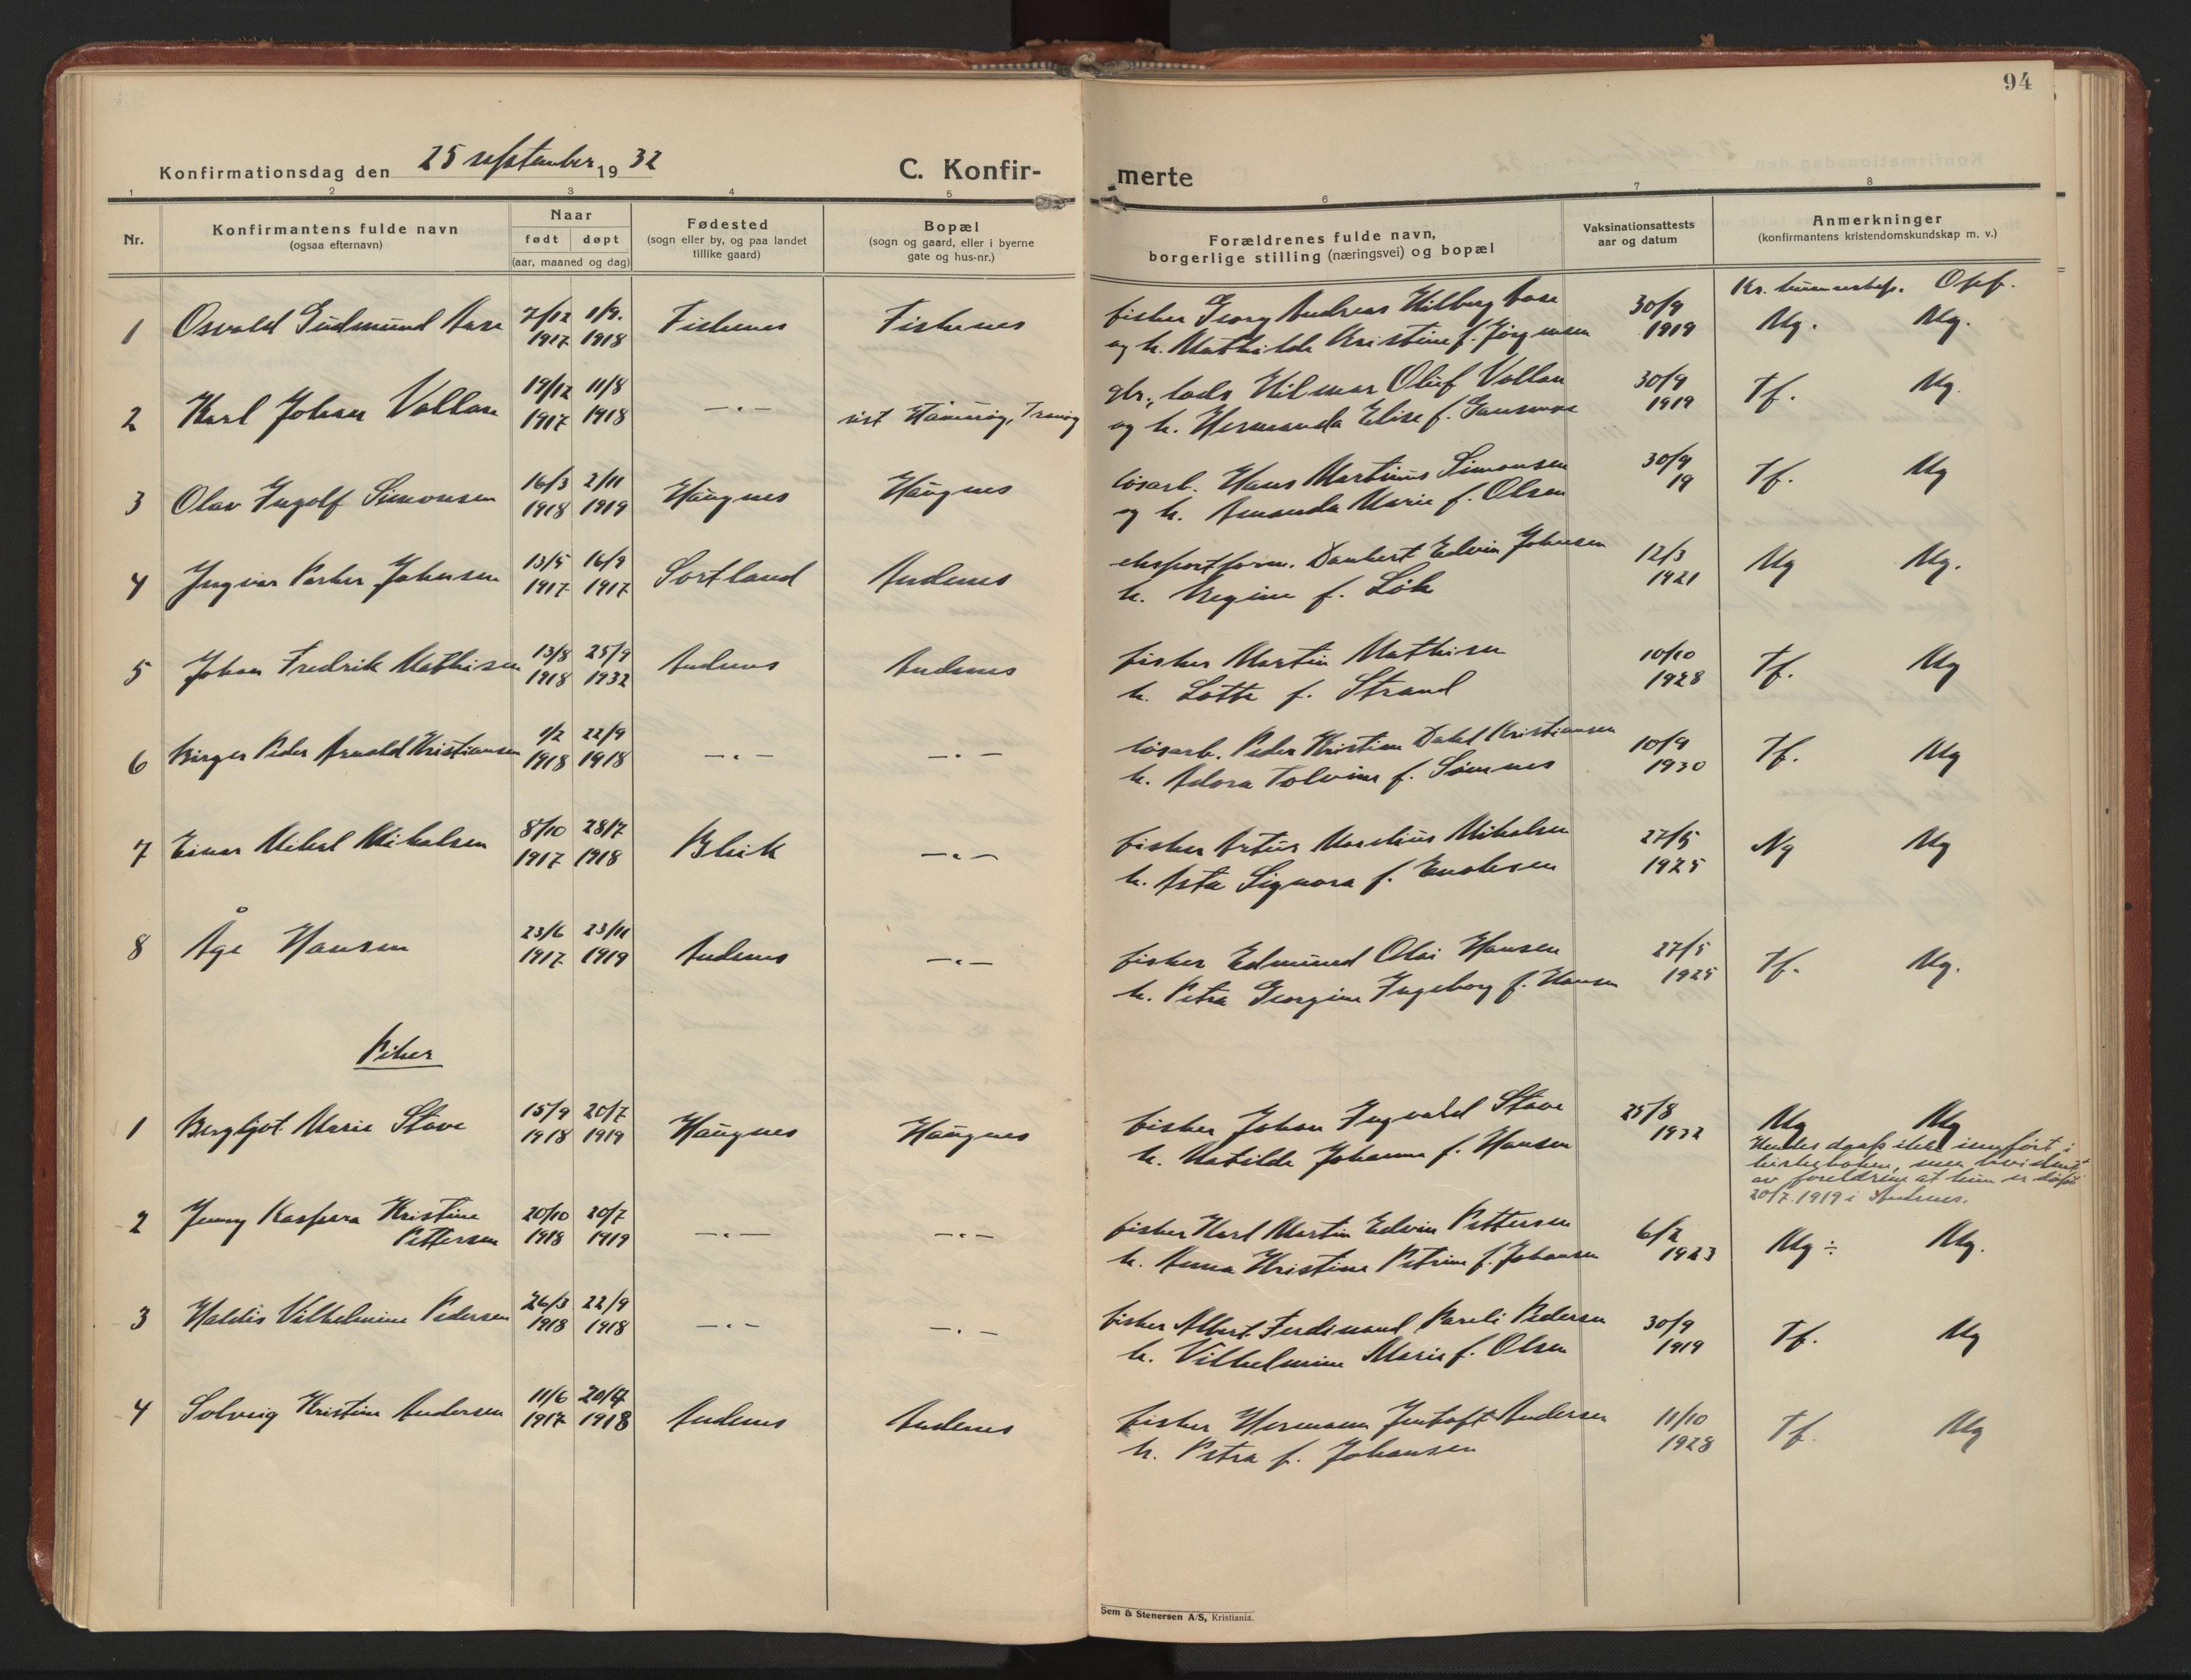 94
Konfirmationsdag den 25 september 1932
C. Konfir-
merte
1 2 3 4 5 6 7 8
Nr.
Konfirmantens fulde navn
(ogsaa efternavn)
Naar
født døpt
(aar, maaned og dag)
Fødested
(sogn eller by, og paa landet
tillike gaard)
Bopæl
(sogn og gaard, eller i byerne
gate og hus-nr.)
Forældrenes fulde navn,
borgerlige stilling (næringsvei) og bopæl
Vaksinationsattests
aar og datum
Anmerkninger
(konfirmantens kristendomskundskap m. v.)
Kr. kunnskap. Opf.
1 Osvald Gudmund Aase 7/12 1917 1/9. 1918 Fiskenes Fiskenes fisker Georg Andreas Hilberg Aase 30/9 1919 Mg. Mg.
og h. Mathilde Kristine f. Jørgensen
2 Karl Johan Vollan 19/12 1917 11/8 1918 —„— Tranøy gbr., lods Hilmar Oluf Vollan 30/9 1919 Tf. Mg.
og h. Hermanda Elise f.
3 Olav Ingolf Simonsen 16/3 1918 2/11 1919 Haugnes Haugnes løsarb. Hans Martinus Simonsen 30/9 19 Tf. Mg
og h. Amanda Marie f. Olsen
4 Ingvar Parker Johnsen 13/5 1917 16/9 1917 Sortland Andenes eksportform. Dankert Edvin Johnsen 12/3 1921 Mg Mg.
h. Regine f. Løk
5 Johan Fredrik Mathisen 13/8 1918 25/9 1932 Andenes Andenes fisker Martin Mathisen 10/10 1928 Tf. Mg
h. Lotte f. Strand
6 Birger Peder Arnold Kristiansen 1/2 1918 22/9 1918 —„— —„— løsarb. Peder Kristian Dahl Kristiansen 10/9 1930 Tf. Mg
h. Adora Tolvine f. Sømnes
7 Einar Mikal Mikalsen 8/10 1917 28/7 1918 Bleik —„— fisker Artur Marelius Mikalsen 27/5 1925 Ng Mg
h. Asta Signora f. Enoksen
8 Åge Hansen 23/6 1917 23/11 1919 Andenes —„— fisker Edmund Olai Hansen 27/5 1925 Tf. Mg.
h. Petra Georgine Ingeborg f. Hansen
Piker
1 Bergljot Marie Stave 15/9 1918 20/7 1919 Haugnes Haugnes fisker Johan Ingvald Stave 25/8 1932 Mg Mg
h. Matilde Johanne f. Hansen
Hendes daap ikke innført i
kirkeboken, men bevidnet
av foreldrene at hun er døpt
20/7 1919 i Andenes.
2 Jenny Kaspara Kristine
Pettersen 20/10 1918 20/7 1919 —„— —„— fisker Karl Martin Edvin Pettersen 6/2 1923 Mg ÷ Mg.
h. Anna Kristine Petrine f. Johansen
3 Haldis Vilhelmine Pedersen 26/3 1918 22/9 1918 —„— —„— fisker Albert Ferdinand Pareli Pedersen 30/9 1919 Tf. Mg
h. Vilhelmine Marie f. Olsen
4 Solveig Kristine Andersen 11/6 1917 1918 Andenes Andenes fisker Hermann Jentoft Andersen 11/10 1928 Tf. Mg
h. Petra f. Johansen
Sem & Stenersen A/S, Kristiania.